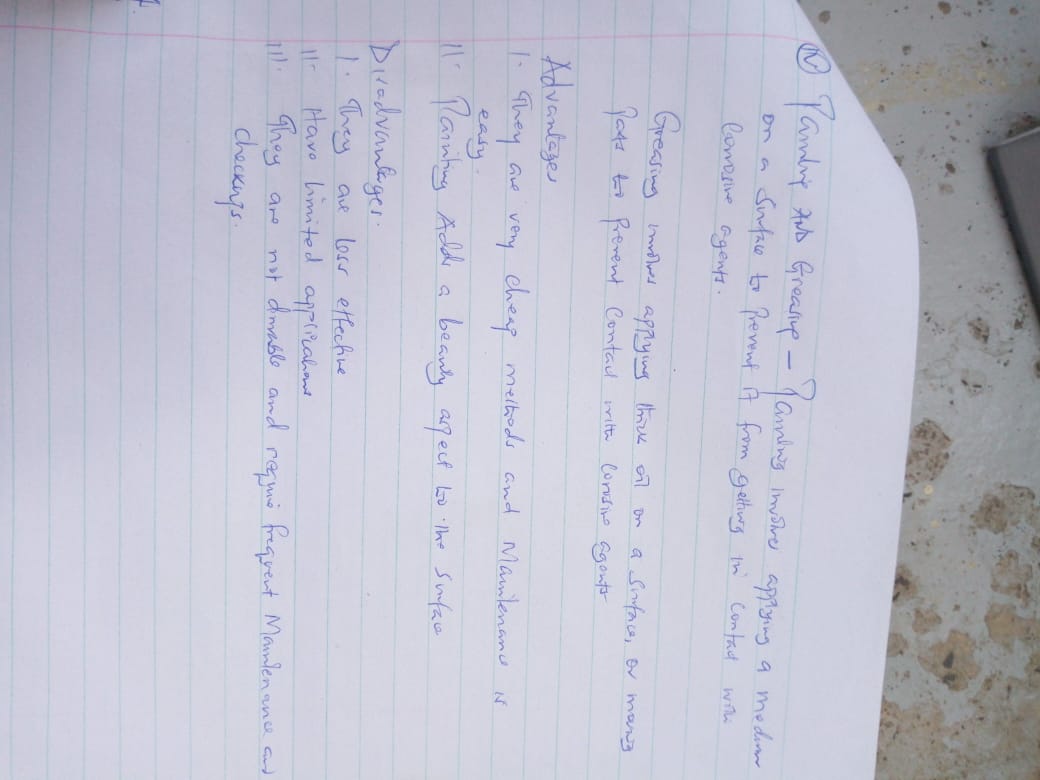 IV Painting AND Greasing – Painting involves applying a medium
on a Surface to Prevent it from getting in contact with
Corrosive agents.
Greasing involves applying thick oil on a Surface, or moving
Parts to Prevent Contact with Corrosive agents
Advantages
I. They are very cheap methods and Maintenance is
easy.
II- Painting Adds a beauty aspect to the Surface
Disadvantages.
I. They are less effective
II- Have limited applications
III. They are not durable and require frequent Maintenance and
checkings.